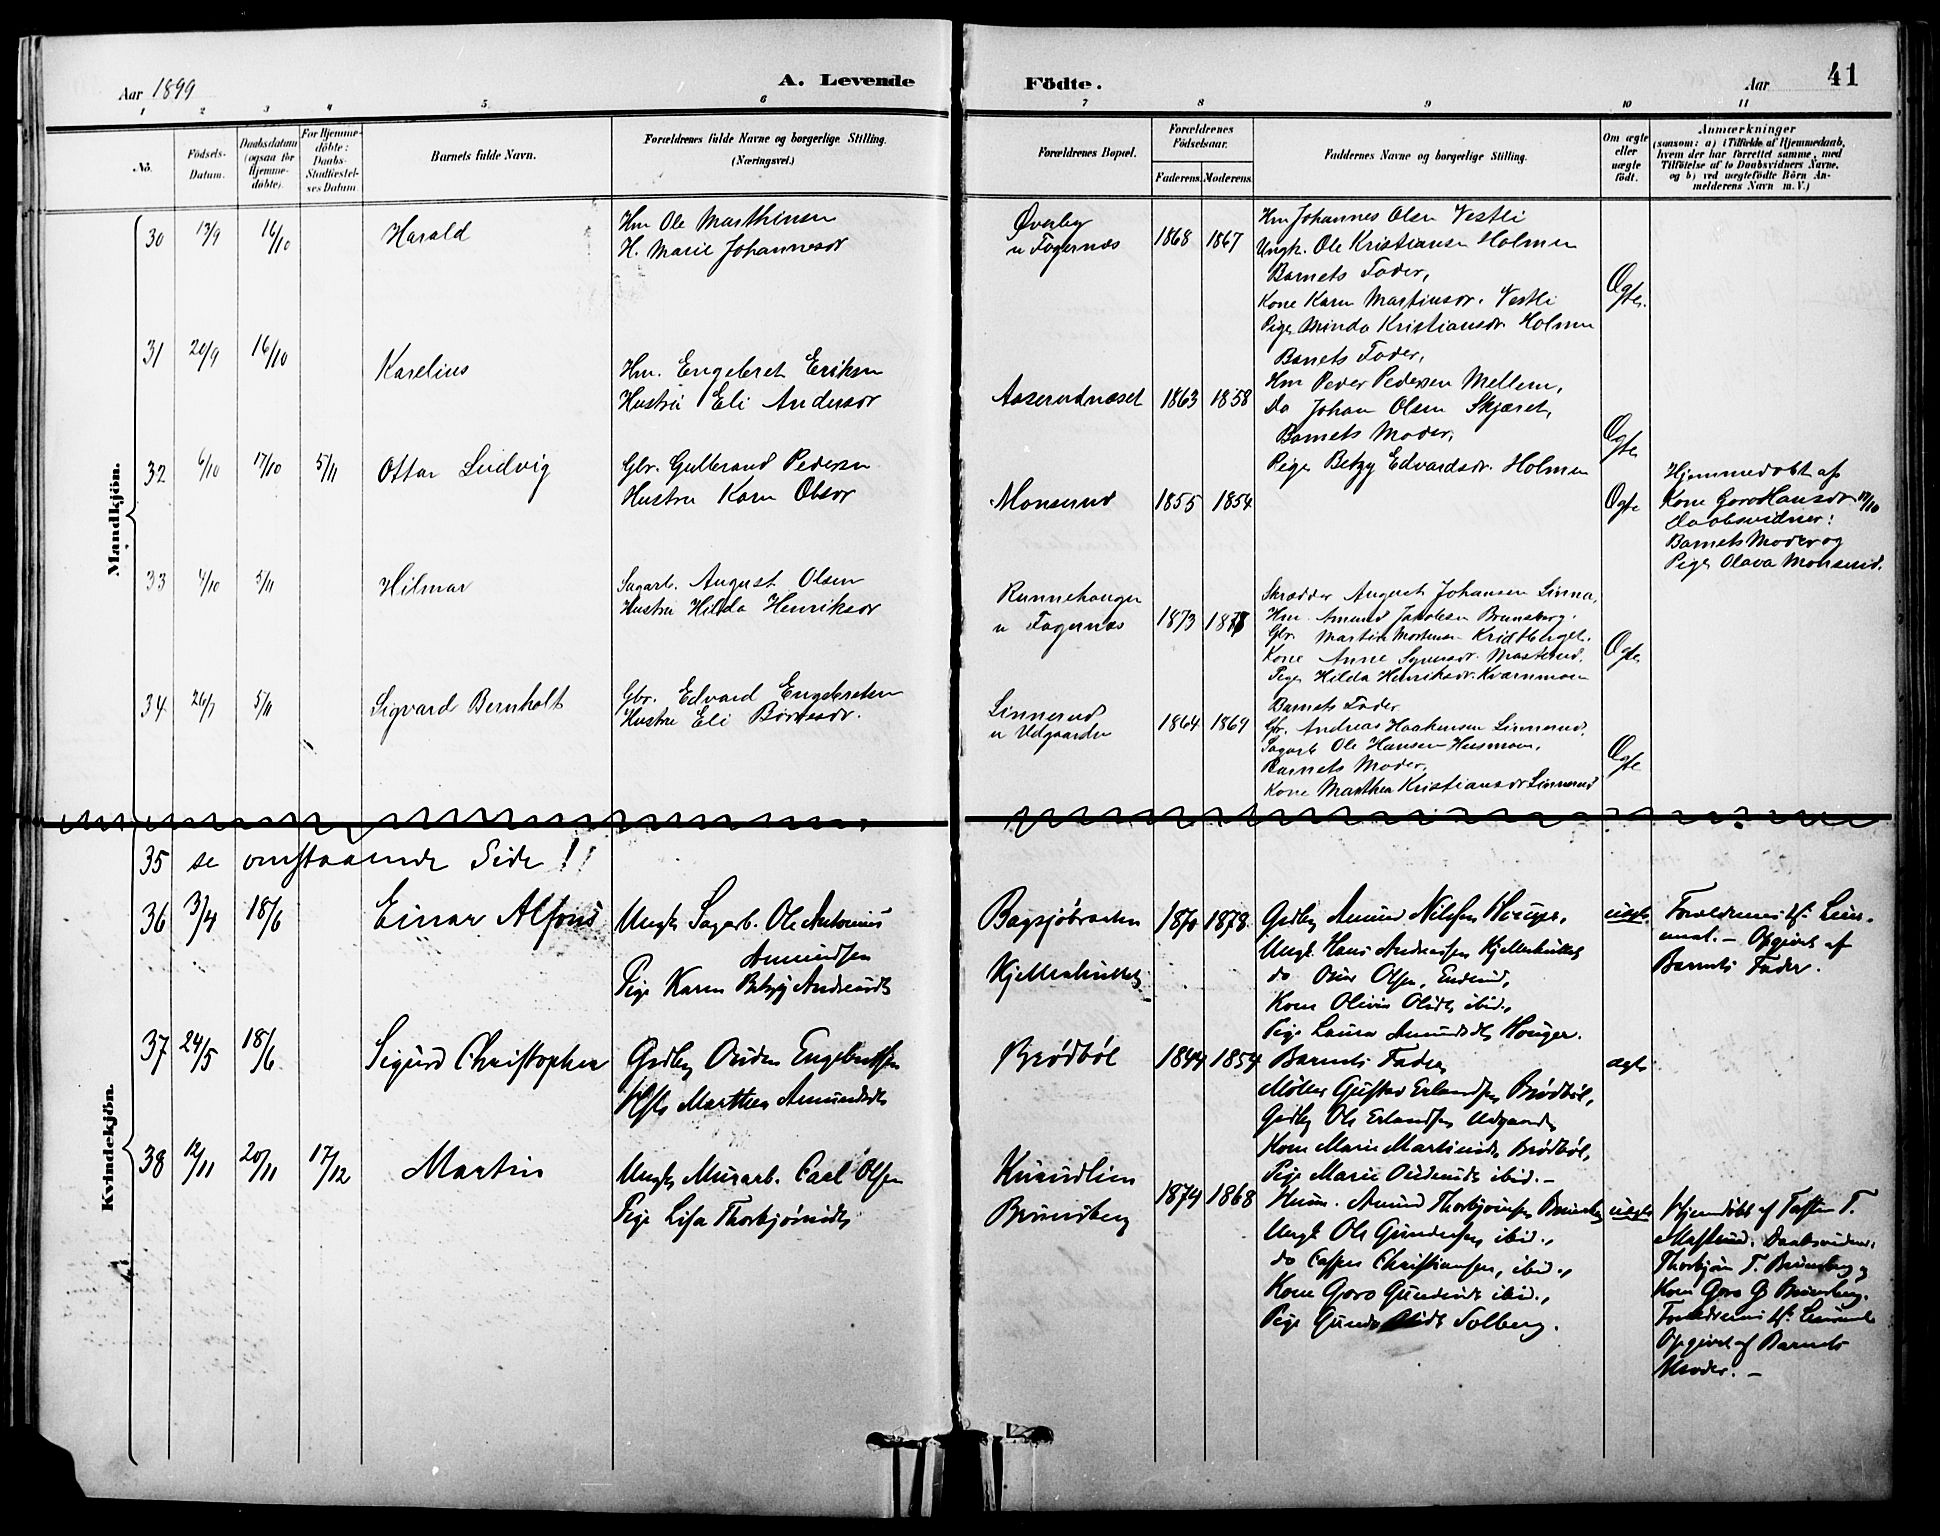 Aar 1899
A. Levende Födte.
Aar 41
1 2 3 4 5 6 7 8 9 10 11
No.
Födsels-Datum.
Daabsdatum (ogsaa for Hjemmedöbte).
For Hjemmedöbte: Daabs-Stadfæstelses Datum
Barnets fulde Navn.
Forældrenes fulde Navne og borgerlige Stilling. (Næringsvei.)
Forældrenes Bopæl.
Forældrenes Födselsaar.
Faderens. Moderens.
Faddernes Navne og borgerlige Stilling.
Om ægte eller uægte födt.
Anmærkninger
(saasom: a) i Tilfælde af Hjemmedaab, hvem der har forrettet samme, med Tilföielse af to Daabsvidners Navne, og b) ved uægtefödte Börn Anmelderens Navn m. V.)
Mandkjön.
30 13/9 16/10 Harald
Hm Ole Marthinsen
H. Marie Johannesdr
Øverby
u Fogernæs
1868 1867
Hm Johannes Olsen Vestli
Ungk. Ole Kristiansen Holmen
Barnets Fader,
Kone Karen Martinsdr. Vestli
Pige Minda Kristiansdr Holmen
Ægte.
31 20/9 16/10 Karelius
Hm. Engebret Eriksen
Hustru Eli Andersdr
Aaserudnæset
1863 1858
Barnets Fader,
Hm Peder Pedersen Mellem,
Do Johan Olsen Skjæret,
Barnets Moder,
Pige Betzy Edvardsdr. Holmen
Ægte
32 6/10 17/10 5/11 Ottar Ludvig
Gbr. Gulbrand Pedersen
Hustru Karen Olsdr
Monserud
1855 1854
Ægte
Hjemmedøbt af
Kone Goro Hansdr 17/10
Daabsvidner:
Barnets Moder og
Pige Olava Monserud.
33 4/10 5/11 Hilmar
Sagarb. August Olsen
Hustru Hilda Henriksdr
Runnehaugen
u Fogernæs
1873 1878
Skrædder August Johansen Linna,
Hm. Amund Jakobsen Bruneberg.
Gbr. Martin Mortensen
Kone Anne Syversdr. Masterud,
Pige Hilda Henriksdr. Kvernmoen
Ægte
34 26/7 5/11 Sigvard Bernholt
Gbr. Edvard Engebretsen
Hustru Eli Børresdr.
Linnerud
u Udgaarden
1864 1869
Barnets Fader
Gbr. Andreas Haakensen Linnerud,
Sagarb Ole Hansen Husmoen,
Barnets Moder,
Kone Marthea Kristiansdr Linnerud
Ægte
Kvindekjön.
35 se omstaaende Side!!
36 3/4 18/6 Einar Alfons
Ungk Sagarb. Ole Antonius
Amundsen
Pige Karen Betzy Andreasdt
Bagsjøbraaten
Kjellerhullet
1870 1878
Grdbr Amund Nilssen Houger,
Ungk. Hans Andreassen Kjellerhullet
do Olsen,
Kone Olivia Olsdt, ibid.,
Pige Laura Amundsdt Houger.
uægte
Forældrenes
Opgivet af
Barnets Fader.
37 24/5 18/6 Sigurd Christopher
Grdbr Ouden Engebretsen
Hstr Marthea Amundsdt
Brødbøl
1844 1854
Barnets Fader
Møller Gustav Erlandsen Brødbøl,
Grdbr Ole Erlandsen Udgaarden
Kone Marie Martinsdt Brødbøl,
Pige Marie Oudensdt ibid. —
ægte
38 12/11 20/11 17/12 Martin
Ungk Murarb. Carl Olsen
Pige Lisa Thorbjørnsdt
Brunsberg
1874 1868
Husm. Amund Thorbjørnsen Brunsberg
Ungk Ole Gundersen, ibid.,
do Casper Christiansen, ibid.,
Kone Goro Gundersdt ibid.,
Pige Gunda Olsdt Solberg.
uægte
Hjemdøbt af T.
Masterud. Daabsvidner:
Thorbjørn T. Brunsberg og
Kone Goro G Brunsberg.
Forældrenes
Opgivet af Barnets
Moder. —